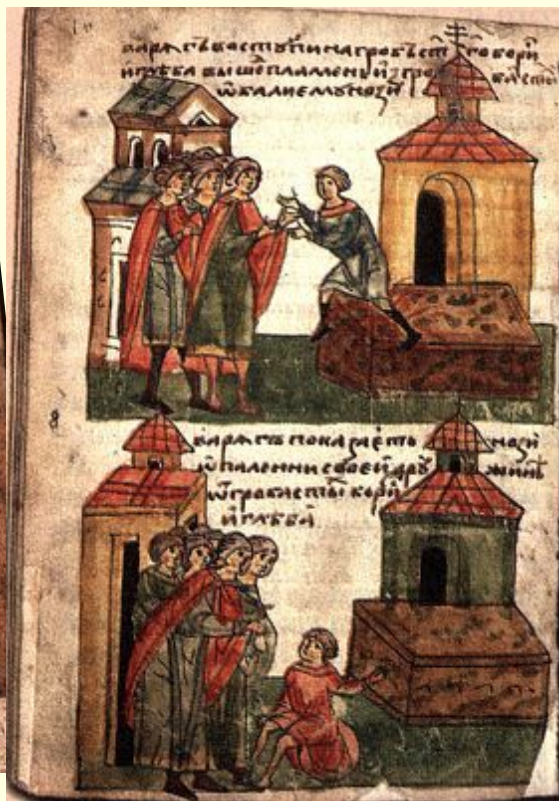 варѧгъ воступи на гробъ ст҃го бори
и глѣба выше пламень изгро ба
нози
варѧгъ показаетъ нози
ѡпаленни своей дрꙋ жинѣ
ѿ гроба бори
и глѣба